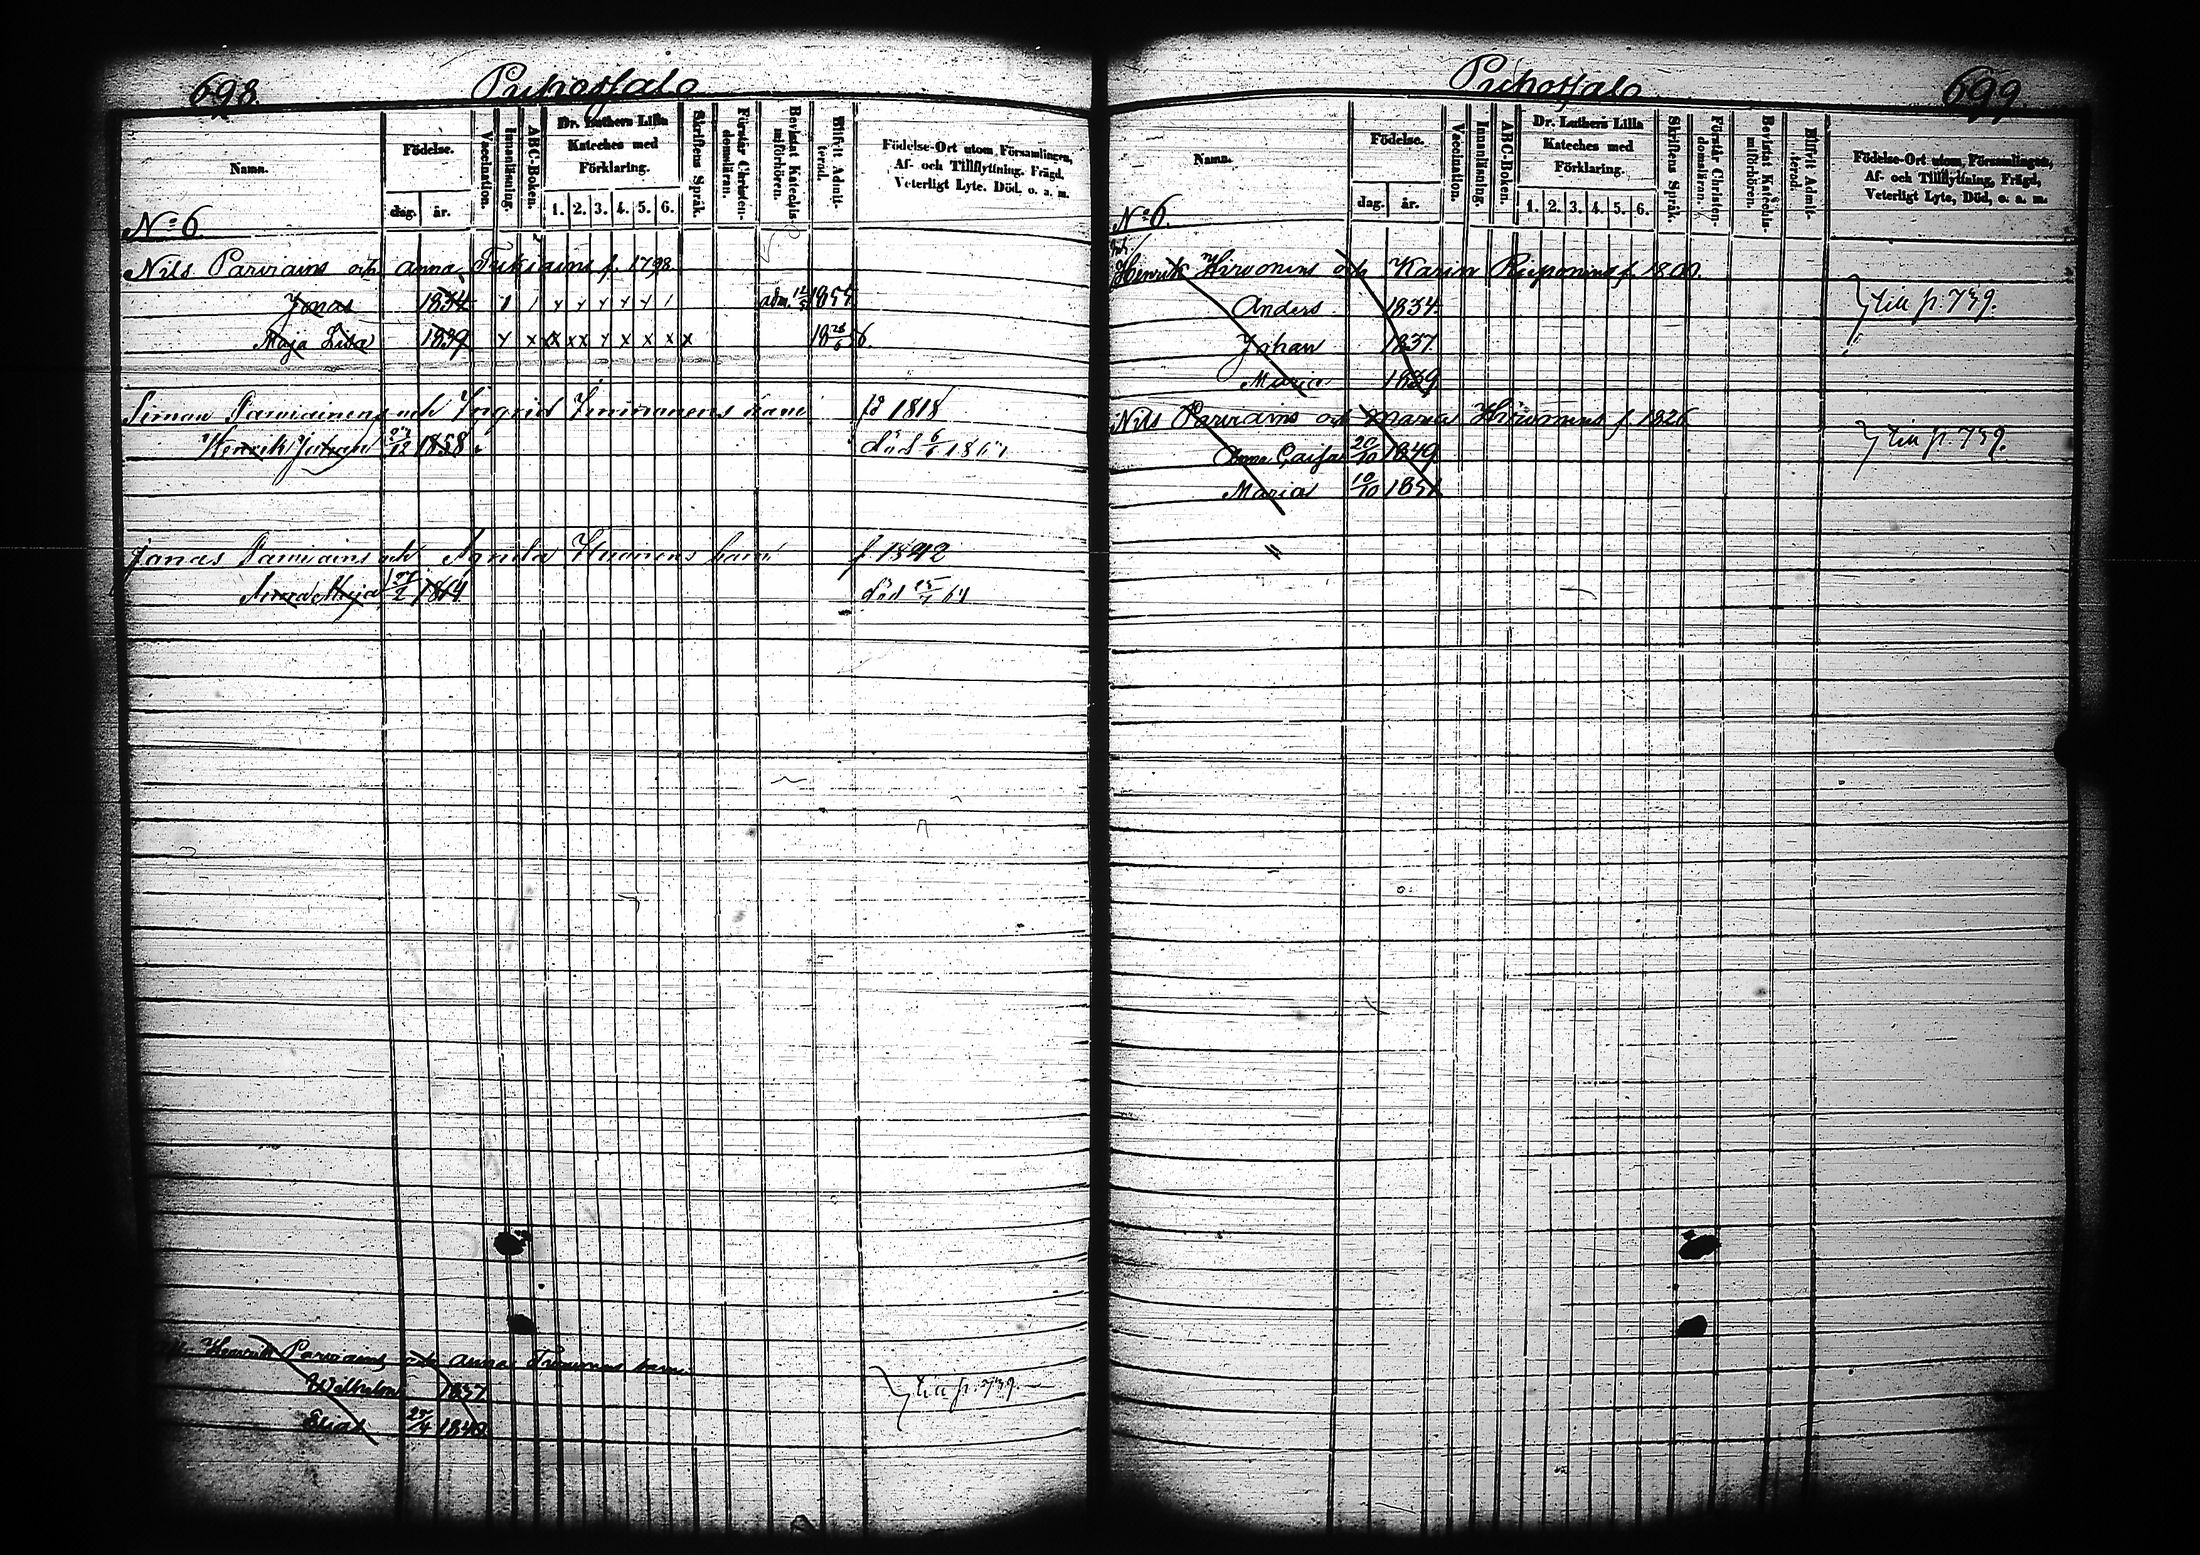 698.
Puhossalo
Namn.
Födelse.
dag.
år.
Vaccination.
Innanläsning.
ABC-Boken.
Dr. Luthers Lilla
Kateches med
Förklaring.
1. 2. 3. 4. 5. 6.
Skriftens Språk.
Förstår Christen-
domsläran.
Bevistat Katechis-
miförhören.
Blifvit Admit-
terad.
Födelse-Ort utom Församlingen,
Af- och Tillflyttning, Frägd,
Veterligt Lyte, Död, o. s. m.
No 6
Nils Parviains och Anna f. 1798
Jonas 1834 adm. 1855
Maja Lisa 1839 18 28/6 6.
Simon Parviainens och Ingrid barn fd 1818
Henrik Johan 1858 död 6/6
Jonas Parviains och Agneta barn f 1842
Anna Maja 1864 död 64
Henrik Parviains och Anna barn.
Wilhelm 1837 till p. 739.
Elias 27/4 1840
Puhossalo
699.
Namn.
Födelse.
dag.
år.
Vaccination.
Innanläsning.
ABC-Boken.
Dr. Luthers Lilla
Kateches med
Förklaring.
1. 2. 3. 4. 5. 6.
Skriftens Språk.
Förstår Christen-
domsläran.
Bevistat Katechis-
miförhören.
Blifvit Admit-
terad.
Födelse-Ort utom Församlingen,
Af- och Tillflyttning, Frägd,
Veterligt Lyte, Död, o. s. m.
No 6.
Henrik Hirvonens och Karin f. 1800.
Anders 1834. till p. 739.
Johan 1837
Maria 1839
Nils Parviains och Maria Hirvonens f. 1826
Anna Caisa 20/10 1849 till p. 739.
Maria 10/10